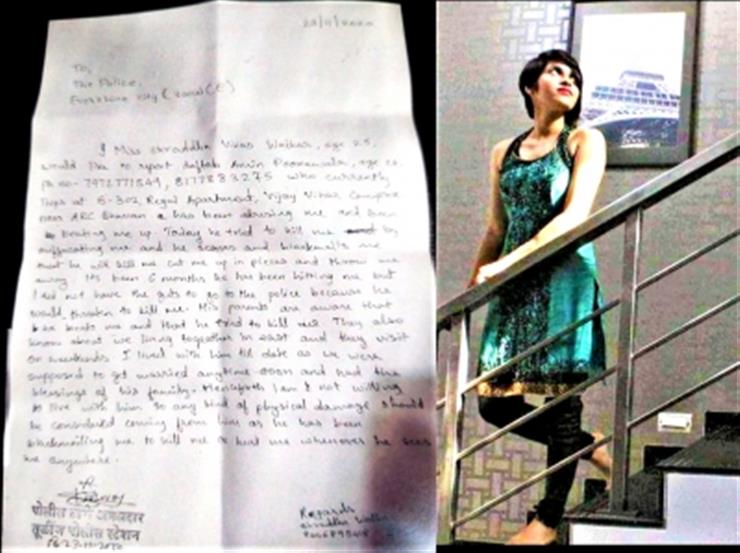 23/11/2020
To,
The Police,
I Miss Shraddha Vikas Walkar, age 25,
would like to report Aaftab Amin Poonawala, age
ph no- 8177883275 who currently
lives at Regal Apartment, Vijay Vihar Complex
near has been abusing me and been
beating me up. Today he tried to kill me by
suffocating me and he scares and blackmails me
that he will kill me cut me up in pieces and throw me
away. Its been 6 months he has been hitting me but
I did not have the guts to go to the police because he
would threaten to kill me. His parents are aware that
he beats me and that he tried to kill me. They also
know about we living together and they visit
on weekends. I lived with him till date as we were
supposed to get married anytime soon and had the
blessings of his family. Henceforth I am not willing
to live with him so any kind of physical damage should
be considered coming from him as he has been
blackmailing me to kill me or hurt me whenever he sees
me anywhere.
पोलीस ठाणे अंमलदार
तुळींज पोलीस स्टेशन
Regards
Shraddha Walkar